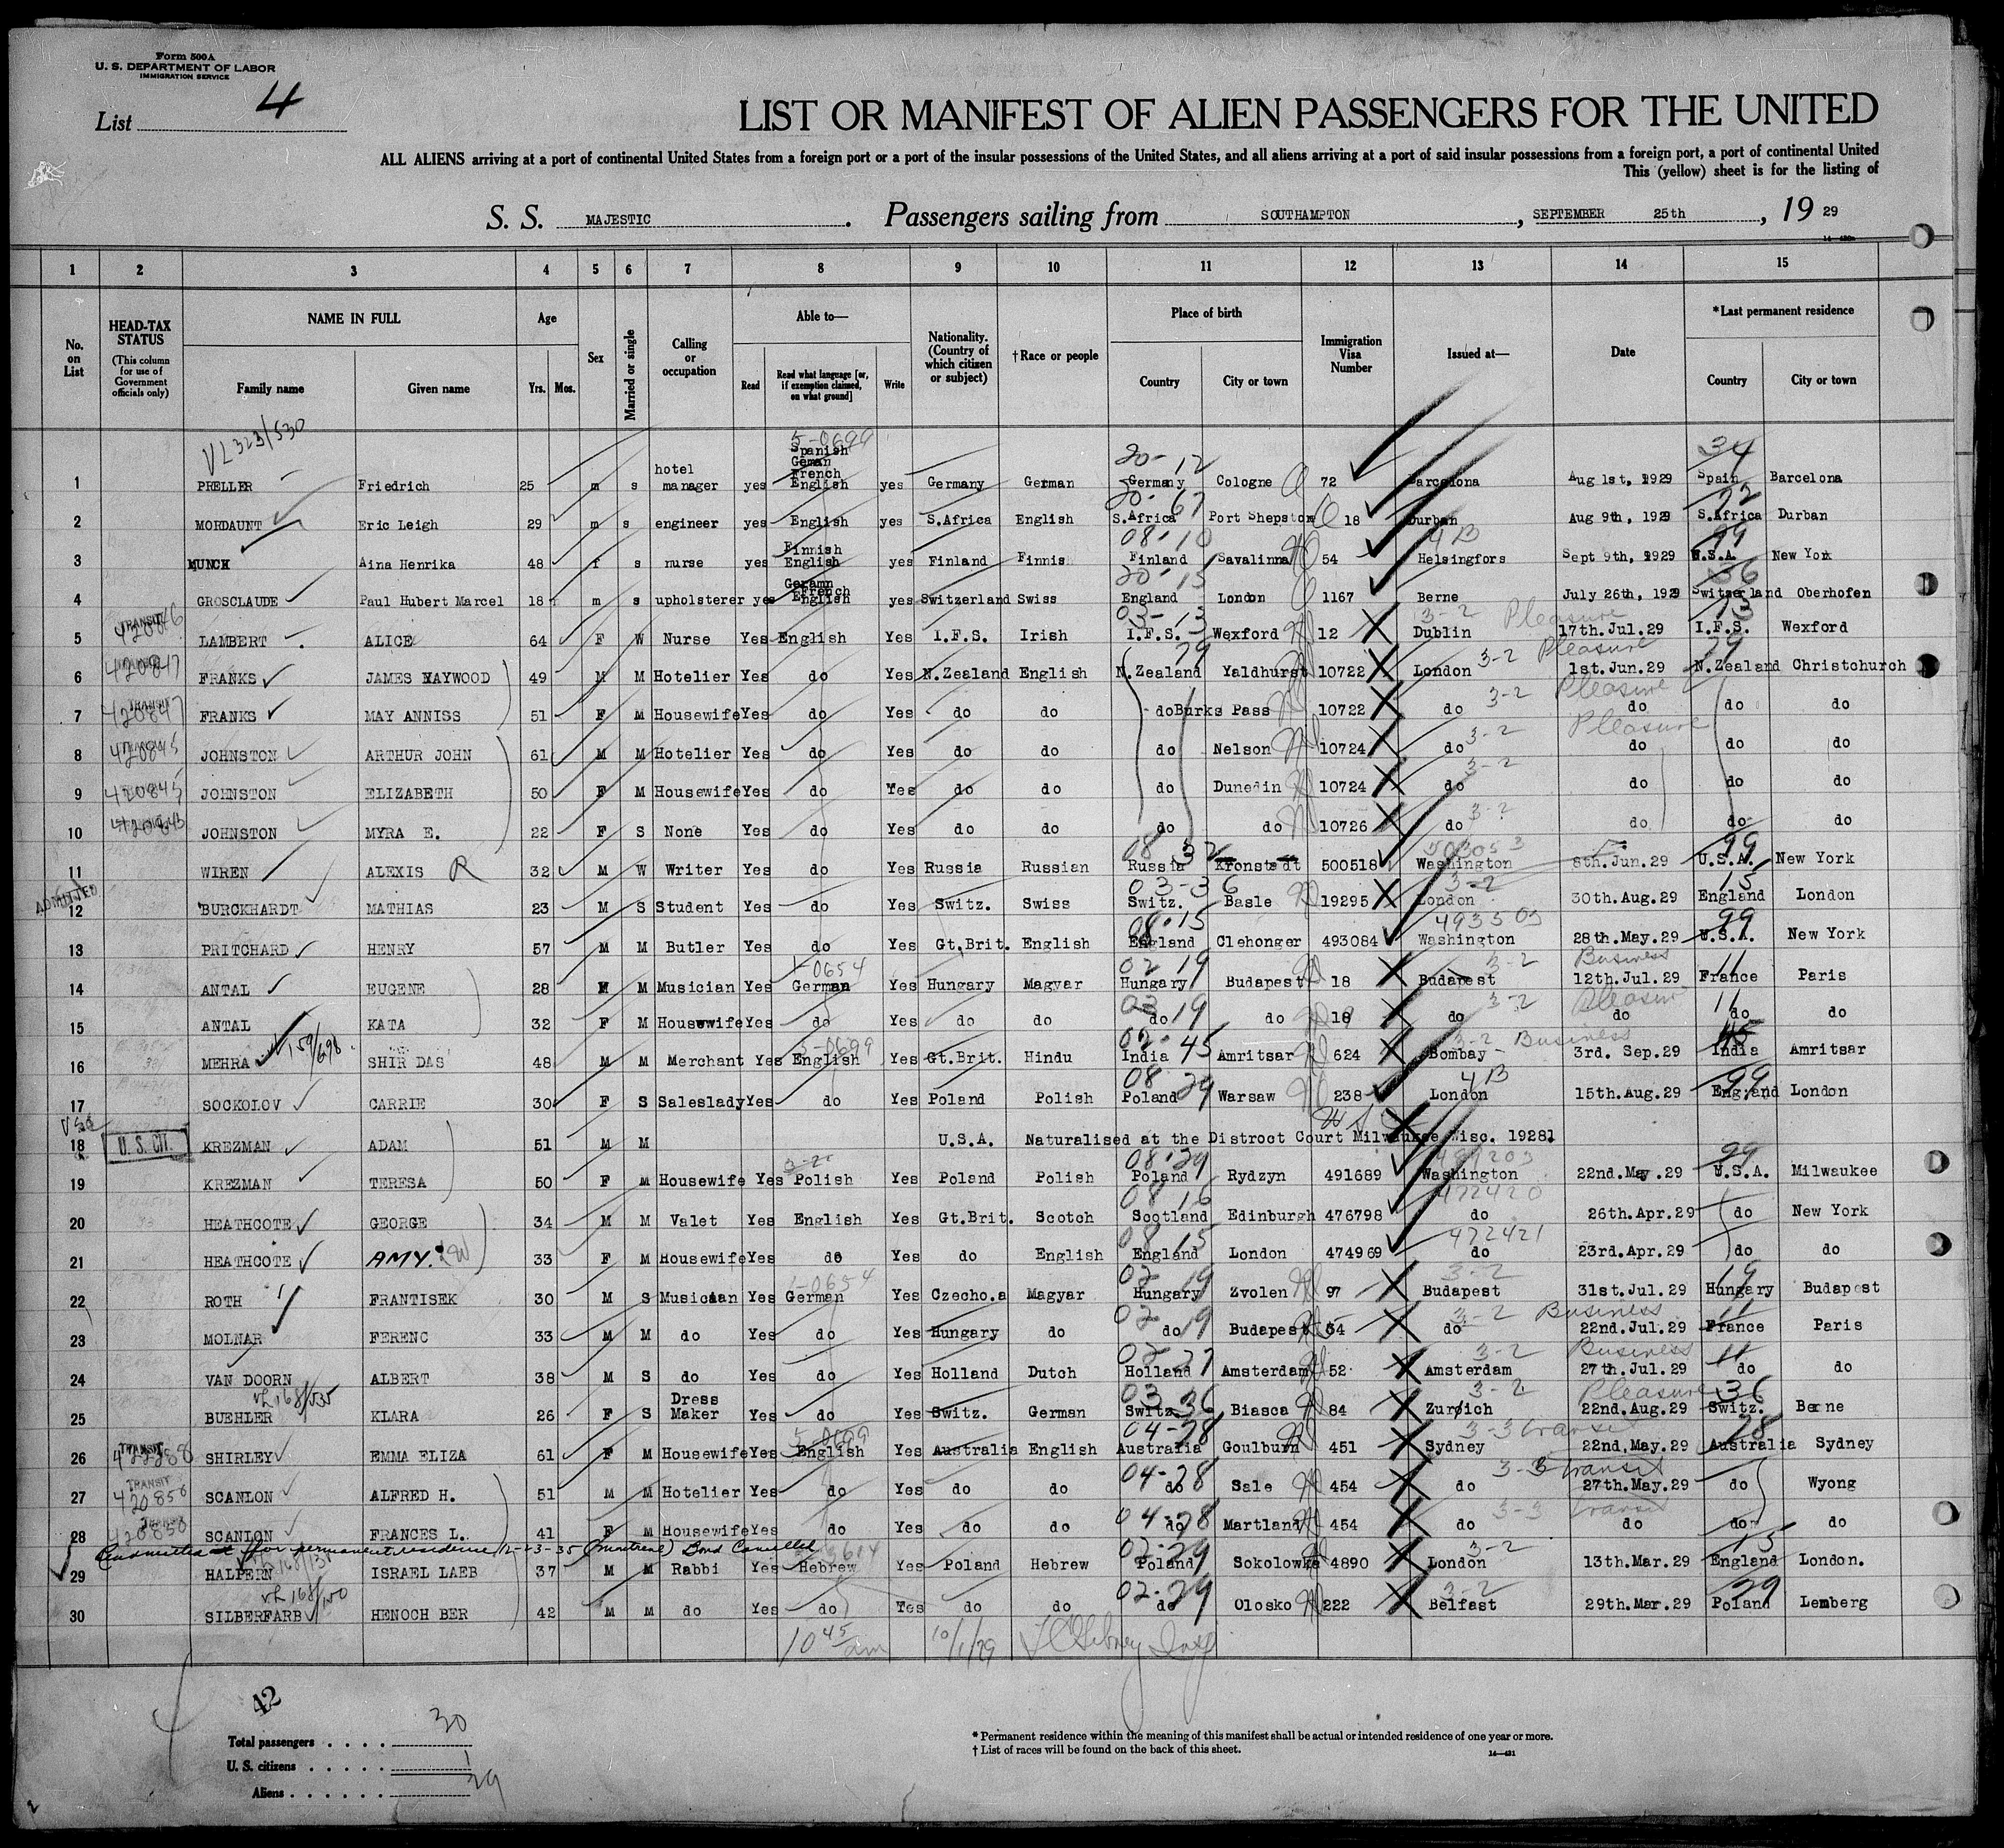 Form 500A
U. S. DEPARTMENT OF LABOR
IMMIGRATION SERVICE
List 4
LIST OR MANIFEST OF ALIEN PASSENGERS FOR THE UNITED
ALL ALIENS arriving at a port of continental United States from a foreign port or a port of the insular possessions of the United States, and all aliens arriving at a port of said insular possessions from a foreign port, a port of continental United
This (yellow) sheet is for the listing of
S. S. MAJESTIC. Passengers sailing from SOUTHAMPTON, SEPTEMBER 25th, 19 29
1 2 3 4 5 6 7 8 9 10 11 12 13 14 15
No. on List HEAD-TAX STATUS (This column for use of Government officials only) NAME IN FULL Family name Given name Age Yrs. Mos. Sex Married or single Calling or occupation Able to— Read Read what language [or, if exemption claimed, on what ground] Write Nationality. (Country of which citizen or subject) †Race or people Place of birth Country City or town Immigration Visa Number Issued at— Date *Last permanent residence Country City or town
VL323/530 5-0699 20-12 34
1 PRELLER Friedrich 25 m s hotel manager yes Spanish Geman French English yes Germany German Germany Cologne 72 Barcelona Aug 1st, 1929 Spain Barcelona
20-67
2 MORDAUNT Eric Leigh 29 m s engineer yes English yes S.Africa English S.Africa Port Shepstone 18 Durban Aug 9th, 1929 S.Africa Durban
08-10 4B 99
3 MUNCK Aina Henrika 48 f s nurse yes Finnish English yes Finland Finnis Finland Savalinna 54 Helsingfors Sept 9th, 1929 U.S.A. New York
20-15 36
4 GROSCLAUDE Paul Hubert Marcel 18 m s upholsterer yes Geramn French English yes Switzerland Swiss England London 1167 Berne July 26th, 1929 Switzerland Oberhofen
TRANSIT 03-13 3-2 Pleasure 13
5 LAMBERT ALICE 64 F W Nurse Yes English Yes I.F.S. Irish I.F.S. Wexford 12 Dublin 17th.Jul.29 I.F.S. Wexford
420847 79 3-2 Pleasure 79
6 FRANKS JAMES HAYWOOD 49 M M Hotelier Yes do Yes N.Zealand English N.Zealand Yaldhurst 10722 London 1st.Jun.29 N.Zealand Christchurch
TRANSIT 420847 3-2 Pleasure
7 FRANKS MAY ANNISS 51 F M Housewife Yes do Yes do do do Burks Pass 10722 do do do do
420845 3-2 Pleasure
8 JOHNSTON ARTHUR JOHN 61 M M Hotelier Yes do Yes do do do Nelson 10724 do do do do
420845 3-2
9 JOHNSTON ELIZABETH 50 F M Housewife Yes do Yes do do do Dunedin 10724 do do do do
3-2
10 JOHNSTON MYRA E. 22 F S None Yes do Yes do do do do 10726 do do do do
08 32 99
11 WIREN ALEXIS R 32 M W Writer Yes do Yes Russia Russian Russia Kronstadt 500518 Washington 8th.Jun.29 U.S.A. New York
ADMITTED 03-36 3-2 15
12 BURCKHARDT MATHIAS 23 M S Student Yes do Yes Switz. Swiss Switz. Basle 19295 London 30th.Aug.29 England London
08-15 493503 99
13 PRITCHARD HENRY 57 M M Butler Yes do Yes Gt.Brit. English England Clehonger 493084 Washington 28th.May.29 U.S.A. New York
1-0654 02 19 3-2 Business 11
14 ANTAL EUGENE 28 M M Musician Yes German Yes Hungary Magyar Hungary Budapest 18 Budapest 12th.Jul.29 France Paris
02 19 3-2 Pleasure 11
15 ANTAL KATA 32 F M Housewife Yes do Yes do do do do 18 do do do do
159/698 5-0699 02-45 3-2 Business 45
16 MEHRA SHIR DAS 48 M M Merchant Yes English Yes Gt.Brit. Hindu India Amritsar 624 Bombay 3rd. Sep.29 India Amritsar
08 29 4B 99
17 SOCKOLOV CARRIE 30 F S Saleslady Yes do Yes Poland Polish Poland Warsaw 238 London 15th.Aug.29 England London
18 U. S. CIT. KREZMAN ADAM 51 M M U.S.A. Naturalised at the Distroct Court Milwaukee Wisc. 1928
3-2 08-29 99
19 KREZMAN TERESA 50 F M Housewife Yes Polish Yes Poland Polish Poland Rydzyn 491689 Washington 22nd.May.29 U.S.A. Milwaukee
08 16 472420
20 HEATHCOTE GEORGE 34 M M Valet Yes English Yes Gt.Brit. Scotch Scotland Edinburgh 476798 do 26th.Apr.29 do New York
08 15 472421
21 HEATHCOTE AMY. 33 F M Housewife Yes do Yes do English England London 474969 do 23rd.Apr.29 do do
1-0654 02 19 3-2 19
22 ROTH FRANTISEK 30 M S Musician Yes German Yes Czecho.a Magyar Hungary Zvolen 97 Budapest 31st.Jul.29 Hungary Budapest
02 19 3-2 Business 11
23 MOLNAR FERENC 33 M M do Yes do Yes Hungary do do Budapest 54 do 22nd.Jul.29 France Paris
02 27 3-2 Business 11
24 VAN DOORN ALBERT 38 M S do Yes do Yes Holland Dutch Holland Amsterdam 52 Amsterdam 27th.Jul.29 do do
VL 168/535 03 36 3-2 Pleasure 36
25 BUEHLER KLARA 26 F S Dress Maker Yes do Yes Switz. German Switz. Biasca 84 Zurich 22nd.Aug.29 Switz. Berne
TRANSIT 5-0699 04-78 3-3 transit 78
26 SHIRLEY EMMA ELIZA 61 F M Housewife Yes English Yes Australia English Australia Goulburn 451 Sydney 22nd.May.29 Australia Sydney
TRANSIT 420850 04-78 3-3 transit
27 SCANLON ALFRED H. 51 M M Hotelier Yes do Yes do do do Sale 454 do 27th.May.29 do Wyong
420850 04-78 3-3 transit
28 SCANLON FRANCES L. 41 F M Housewife Yes do Yes do do do Martland 454 do do do do
permanent residence 12-23-35 (Montreal) Bond Cancelled 02-29 3-2 15
29 HALPERN ISRAEL LAEB 37 M M Rabbi Yes Hebrew Yes Poland Hebrew Poland Sokolowka 4890 London 13th.Mar.29 England London.
02-29 3-2 29
30 SILBERFARB HENOCH BER 42 M M do Yes do Yes do do do Olosko 222 Belfast 29th.Mar.29 Poland Lemberg
10 45 am 10/1/29
42
Total passengers 30
U. S. citizens 1
Aliens 29
* Permanent residence within the meaning of this manifest shall be actual or intended residence of one year or more.
† List of races will be found on the back of this sheet.
14—421